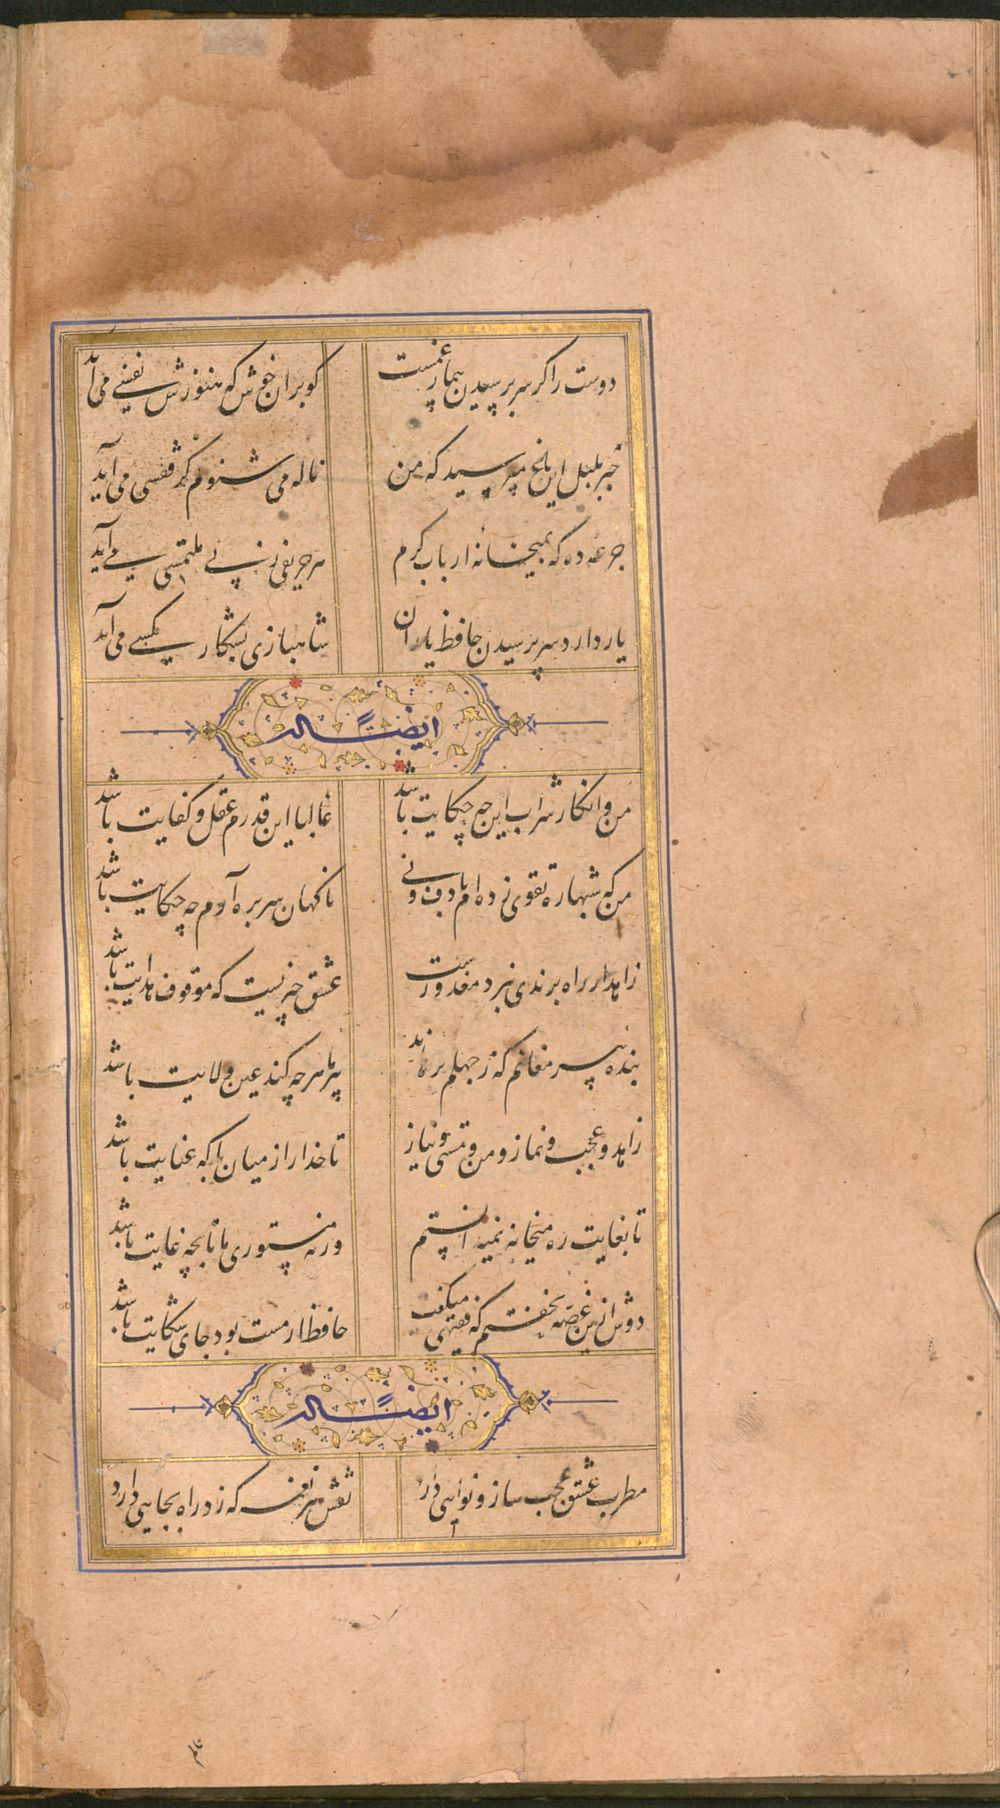 دوست را گر سر پرسیدن بیمار غمست
کو بران خوش که هنوزش نفسی می آید
خبر بلبل این باغ مپرسید که من
ناله می شنوم کز قفسی می آید
جرعه ده که بمیخانه ارباب کرم
هر حریفی ز پی ملتمسی می آید
یار دارد سر پرسیدن حافظ یاران
شاهبازی بشکار مگسی می آید
ایضاً له
من و انکار شراب این چه حکایت باشد
غالبا این قدرم عقل و کفایت باشد
من که شبها ره تقوی زده ام با دف و نی
ناگهان سر بره آرم چه حکایت باشد
زاهد ار راه برندی نبرد معذورست
عشق چیزیست که موقوف هدایت باشد
بنده پیر مغانم که ز جهلم برهاند
پیر ما هرچه کند عین ولایت باشد
زاهد و عجب و نماز و من و مستی و نیاز
تا خدا را ز میان با که عنایت باشد
تا بغایت ره میخانه نمیدانستم
ورنه مستوری ما تا بچه غایت باشد
دوش ازین غصه نخفتم که فقیهی میگفت
حافظ ار مست بود جای شکایت باشد
ایضاً له
مطرب عشق عجب ساز و نوایی دارد
نقش هر نغمه که زد راه بجایی دارد